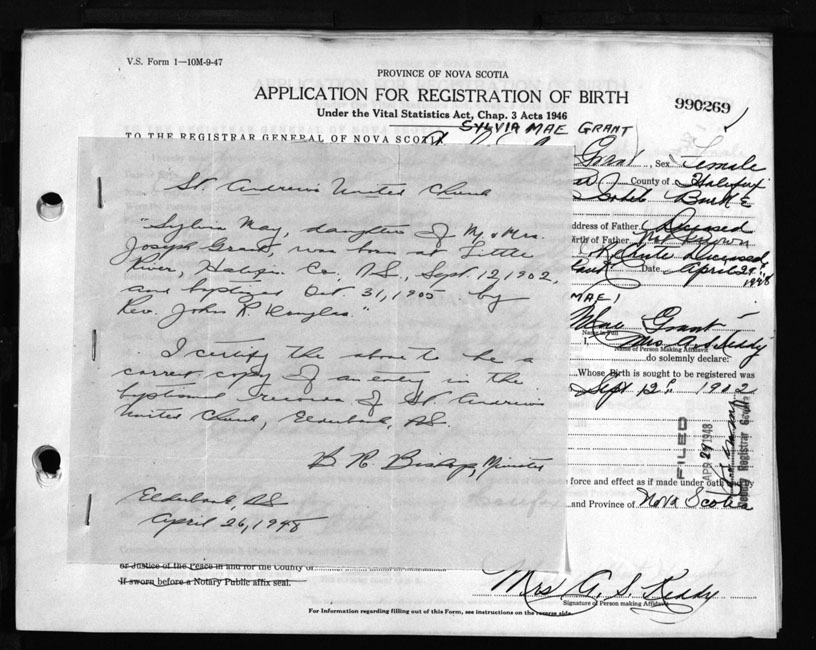 V.S. Form 1—10M-9-47
PROVINCE OF NOVA SCOTIA
APPLICATION FOR REGISTRATION OF BIRTH
990269
Under the Vital Statistics Act, Chap. 3 Acts 1946
SYLVIA MAE GRANT
TO THE REGISTRAR GENERAL OF NOVA SCOTIA
Grant, Sex Female
County of Halifax
Burke
address of Father Deceased
Birth of Father Not Known
Deceased
Date April 29th, 1948
MAE)
Mae Grant
Name in Full
I, Mrs A S Reddy
Name of Person Making Affidavit
do solemnly declare:
Whose Birth is sought to be registered was
Sept 12th 1902
FILED
APR 29 1948
Deputy Registrar General
force and effect as if made under oath
and Province of Nova Scotia
St. Andrew's United Church
"Sylvia May, daughter of Mr & Mrs.
Joseph Grant, was born at Little
River, Halifax Co., N.S., Sept. 12, 1902,
and baptized Oct. 31, 1905 by
Rev. John R Douglas."
I certify the above to be a
correct copy of an entry in the
baptismal records of St. Andrew's
United Church, Elderbank, N.S.
B R Bishop, Minister
Elderbank, N.S.
April 26, 1948
or Justice of the Peace in and for the County of
If sworn before a Notary Public affix seal.
Mrs A. S. Reddy
Signature of Person making Affidavit
For Information regarding filling out of this Form, see instructions on the reverse side.